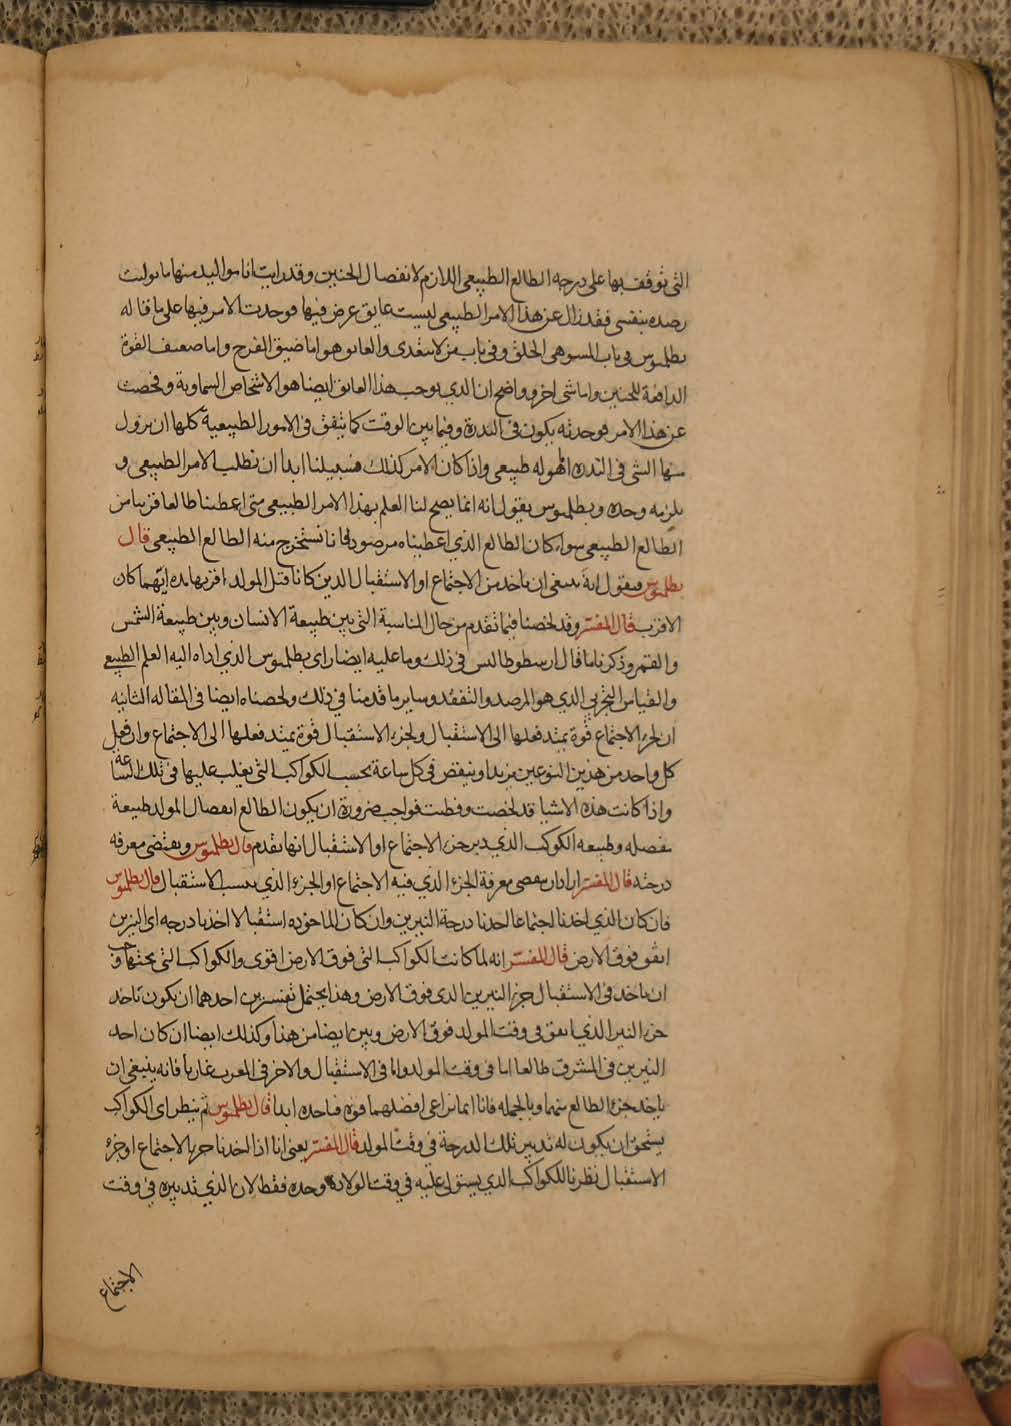 التى نوقف بها على درجه الطالع الطبيعى اللازم لانفصال الجنين وقد رايت انا مواليد منها ما توليت
رصده بنفسى فقد زال عن هذا الامر الطبيعى ليست عايق عرض فيها فوجدت الامر فيها على ما قاله
بطلميوس فى باب المسوهى الخلق وفى باب من لا يتغدى والعايق هو اما ضيق الفرج واما ضعف القوة
الدافعة للجنين واما شى اخر وواضح ان الذي يوجب هذا العايق ايضا هو الاشخاص السماوية وفحصت
عن هذا الامر فوجدته يكون فى الندرة وفيما بين الوقت كما يتفق فى الامور الطبيعية كلها ان يزول
منها الشى فى الندره الهوله طبيعى واذا كان الامر كذلك فسبيلنا ابدا ان نطلب الامر الطبيعى و
نلزمه وحده وبطلميوس يقول انه انما يصح لنا العلم بهذا الامر الطبيعى متى اعطينا طالعا قريبا من
الطالع الطبيعى سواء كان الطالع الذي اعطيناه مرصودا فانا نستخرج منه الطالع الطبيعى قال
بطلميوس فيقول انه ينبغى ان ناخذ من الاجتماع او الاستقبال الذين كانا قبل المولد اقربهما مده ايهما كان
الاقرب قال المفسّر وقد لخصنا فيما تقدم من حال المناسبة التى بين طبيعة الانسان وبين طبيعة الشمس
والقمر وذكرنا ما قال ارسطوطالس فى ذلك وما عليه ايضا راى بطلميوس الذي اداه اليه العلم الطبيعى
والقياس التجربي الذي هو المرصد والتفقد وساير ما قدمنا في ذلك ولخصناه ايضا فى المقاله الثانيه
ان لجزء الاجتماع قوة يمتد فعلها الى الاستقبال ولجزء الاستقبال قوة يمتد فعلها الى الاجتماع وان فعل
كل واحد من هذين النوعين يزيد او ينقص فى كل ساعة بحسب الكواكب التى يغلب عليها فى تلك الساعة
واذا كانت هذه الاشيا قد لخصت وفطنت فواجب ضرورة ان يكون الطالع انفصال المولد طبيعة
تفصله وطبيعه الكوكب الذي دبر جزء الاجتماع او الاستقبال انها تقدم قال بطلميوس ويقتضى معرفه
درجته قال المفسّر اراد ان يتقصى معرفة الجزء الذي فيه الاجتماع او الجزء الذي بحسب الاستقبال قال بطلميوس
فان كان الذي اخذنا اجتماعا اخذنا درجة النيرين وان كان الماخوذه استقبالا اخذنا درجه اى النيرين
اتفق فوق الارض قال المفسّر انه لما كانت الكواكب التى فوق الارض اقوى والكواكب التى تحتها وجب
ان ناخذ فى الاستقبال جزء النيرين الذى فوق الارض وهذا يحتمل تفسيرين احدهما ان يكون ناخذ
جزء النير الذي اتفق فى وقت المولد فوق الارض وبين ايضا من هذا وكذلك ايضا ان كان احد
النيرين فى المشرق طالعا اما فى وقت المولد واما فى الاستقبال والاخر فى المغرب غاربا فانه ينبغى ان
ناخذ جزء الطالع منهما وبالجمله فانا انما نراعى افضلهما قوه فناخذه ابدا قال بطلميوس ثم ينظر اى الكواكب
يستحق ان يكون له تدبير تلك الدرجة في وقت المولد قال المفسّر يعنى انا اذا اخذنا جزء الاجتماع او جزء
الاستقبال نظرنا للكواكب الذي يستولى عليه في وقت الولادة وحده فقط لان الذي تدبيره فى وقت
الاجتماع